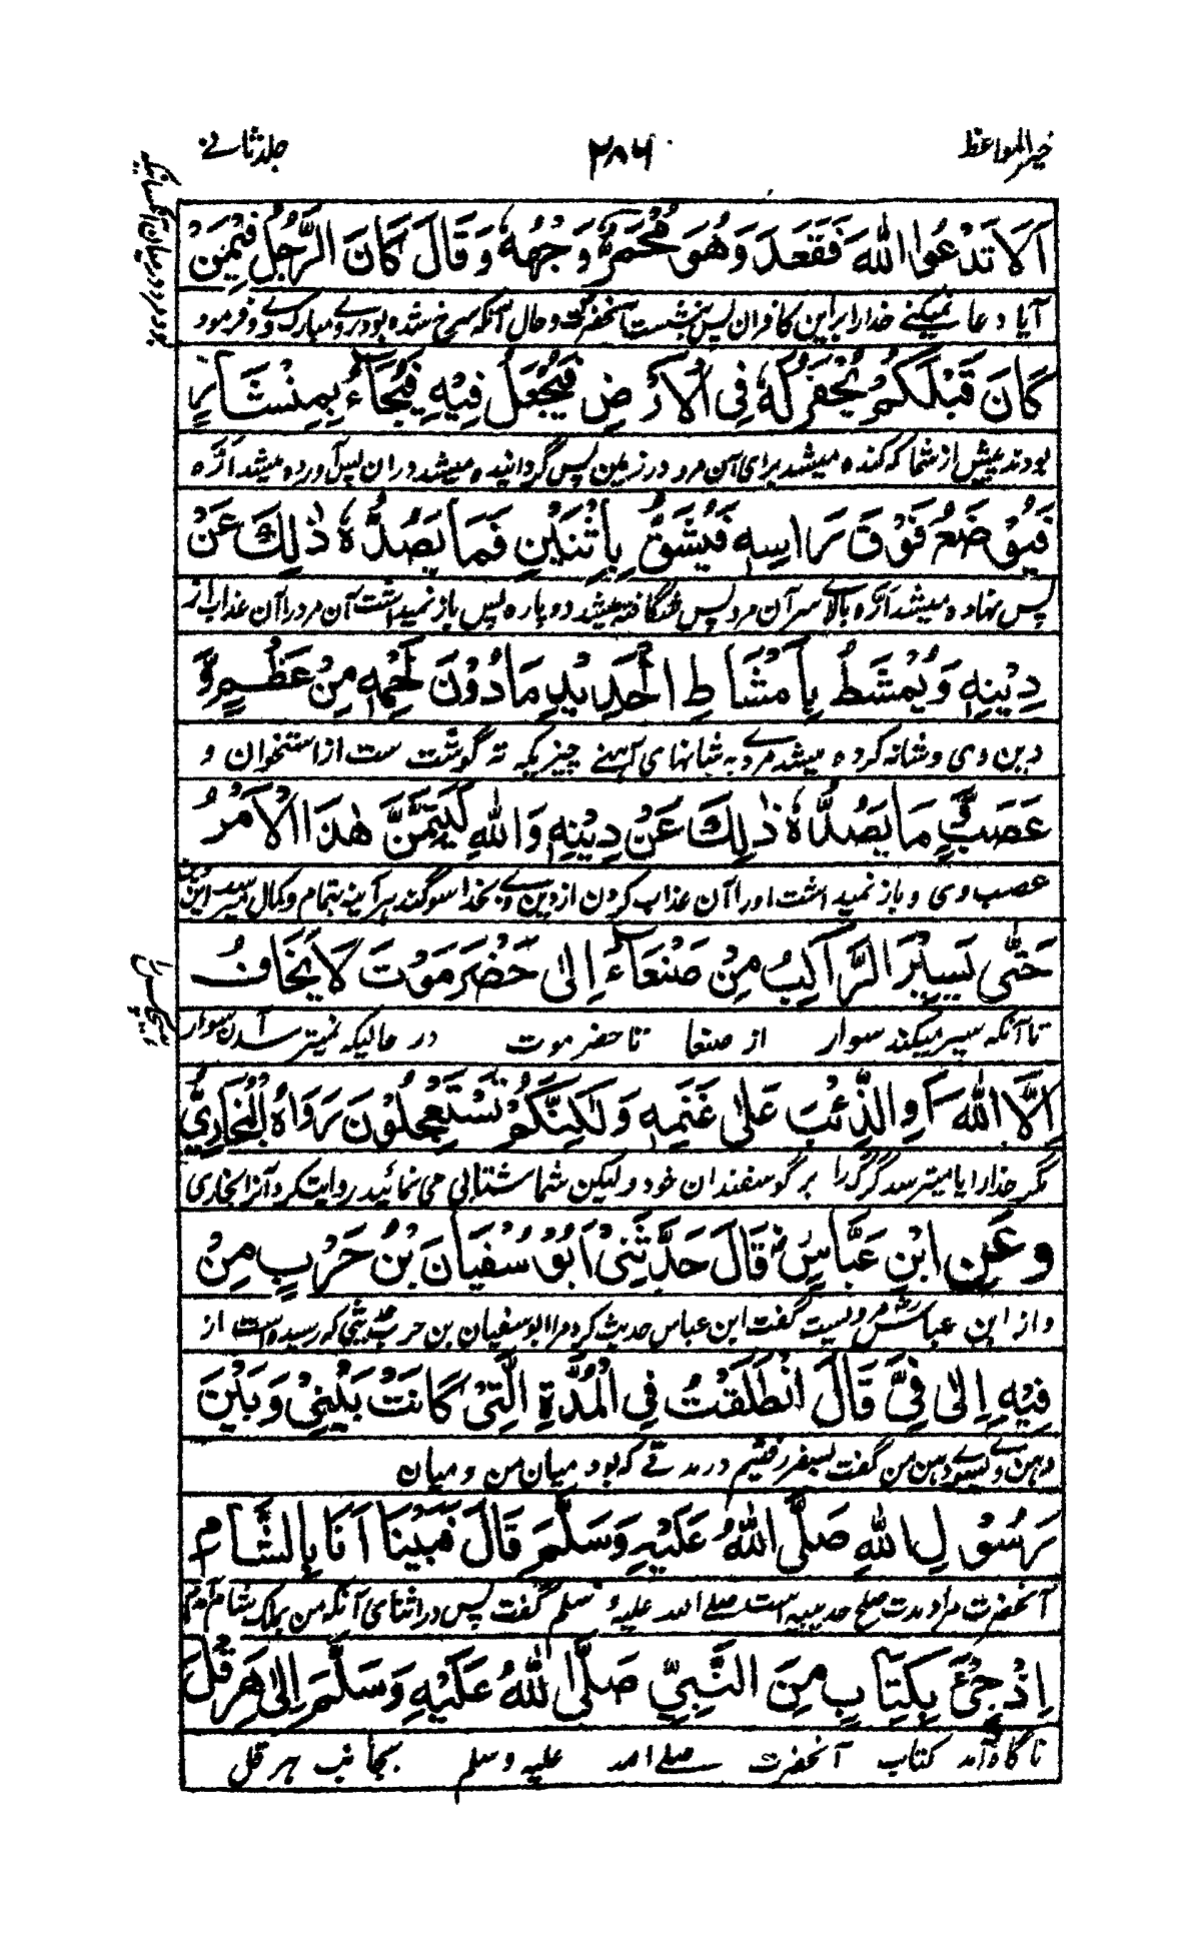 خیر المواعظ ۲۸۶ جلد ثانے
اَلَا تَدْعُوا اللهَ فَقَعَدَ وَهُوَ مُحْمَرٌّ وَجْهُهٗ وَقَالَ كَانَ الرَّجُلُ فِيْمَنْ
آیا دعا نمیکنے خدا را بر این کافران پس بنشست آنحضرت و حال آنکه سرخ شده بود روی مبارک وے و فرمود
كَانَ قَبْلَكُمْ يُحْفَرُ لَهٗ فِى الْاَرْضِ فَيُجْعَلُ فِيْهِ فَيُجَآءُ بِمِنْشَارٍ
بودند پیش از شما که کنده میشد برای آن مرد در زمین پس گردانیده میشد در ان پس آورده میشد ارّه
فَيُوْضَعُ فَوْقَ رَاسِهٖ فَيُشَقُّ بِاثْنَيْنِ فَمَا يَصُدُّهٗ ذٰلِكَ عَنْ
پس نهاده میشد ارّه بالاے سر آن مرد پس شگافته میشد دو باره پس باز نمیداشت آن مرد را آن عذاب از
دِيْنِهٖ وَيُمْشَطُ بِاَمْشَاطِ الْحَدِيْدِ مَا دُوْنَ لَحْمِهٖ مِنْ عَظْمٍ وَّ
دین وی و شانه کرده میشد مردے به شانهای آهنے چیزیکه ته گوشت ست از استخوان و
عَصَبٍ مَا يَصُدُّهٗ ذٰلِكَ عَنْ دِيْنِهٖ وَاللهِ لَيَتِمَّنَّ هٰذَا الْاَمْرُ
عصب وی و باز نمیداشت او را آن عذاب کردن از دین وے بخدا سوگند هر آینه بتمام و کمال میرسد این دین
حَتّٰى يَسِيْرَ الرَّاكِبُ مِنْ صَنْعَآءَ اِلٰى حَضْرَمَوْتَ لَا يَخَافُ
تا آنکه سیر میکند سوار از صنعا تا حضرموت در حالیکه نمیترسد آن سوار
اِلَّا اللهَ اَوِ الذِّئْبَ عَلٰى غَنَمِهٖ وَلٰكِنَّكُمْ تَسْتَعْجِلُوْنَ رَوَاهُ الْبُخَارِيُّ
مگر خدا را یا میترسد گرگ را بر گوسفندان خود و لیکن شما شتابی می نمائید روایت کرد آنرا بخاری
وعَنِ ابْنِ عَبَّاسٍ رض قَالَ حَدَّثَنِىْ اَبُوْ سُفْيَانَ بْنُ حَرْبٍ مِنْ
و از ابن عباس رض مرویست گفت ابن عباس حدیث کرد مرا ابوسفیان بن حرب حدیثی که رسیده است از
فِيْهِ اِلٰى فِيَّ قَالَ انْطَلَقْتُ فِى الْمُدَّةِ الَّتِىْ كَانَتْ بَيْنِىْ وَبَيْنَ
دهن وے بسوے دهن من گفت بسفر رفتیم در مدتے که بود میان من و میان
رَسُوْلِ اللهِ صَلَّى اللهُ عَلَيْهِ وَسَلَّمَ قَالَ فَبَيْنَا اَنَا بِالشَّامِ
آنحضرت مراد مدت صلح حدیبیه است صلے الله علیه وسلم گفت پس در اثنای آنکه من بملک شام آمدم
اِذْ جِىْٓءَ بِكِتَابٍ مِنَ النَّبِيِّ صَلَّى اللهُ عَلَيْهِ وَسَلَّمَ اِلٰى هِرَقْلَ
ناگاه آمد کتاب آنحضرت صلے الله علیه وسلم بجانب هرقل